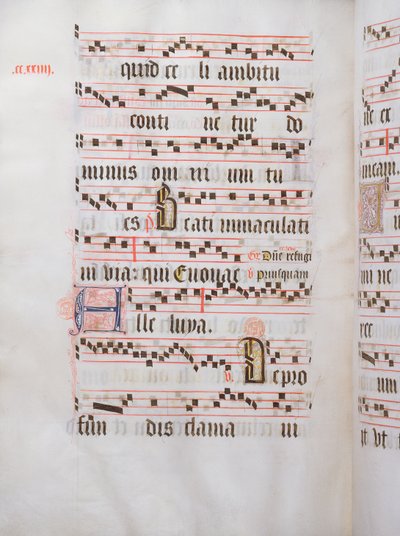 .cc.xxiiij.
quid ce li ambitu
conti ne tur do
minus om ni um tu
es p Beati immaculati
in via: qui Euouae Dñe refugi
v Priusquam
Alle luya.
v. Depro
fun dis clama ui